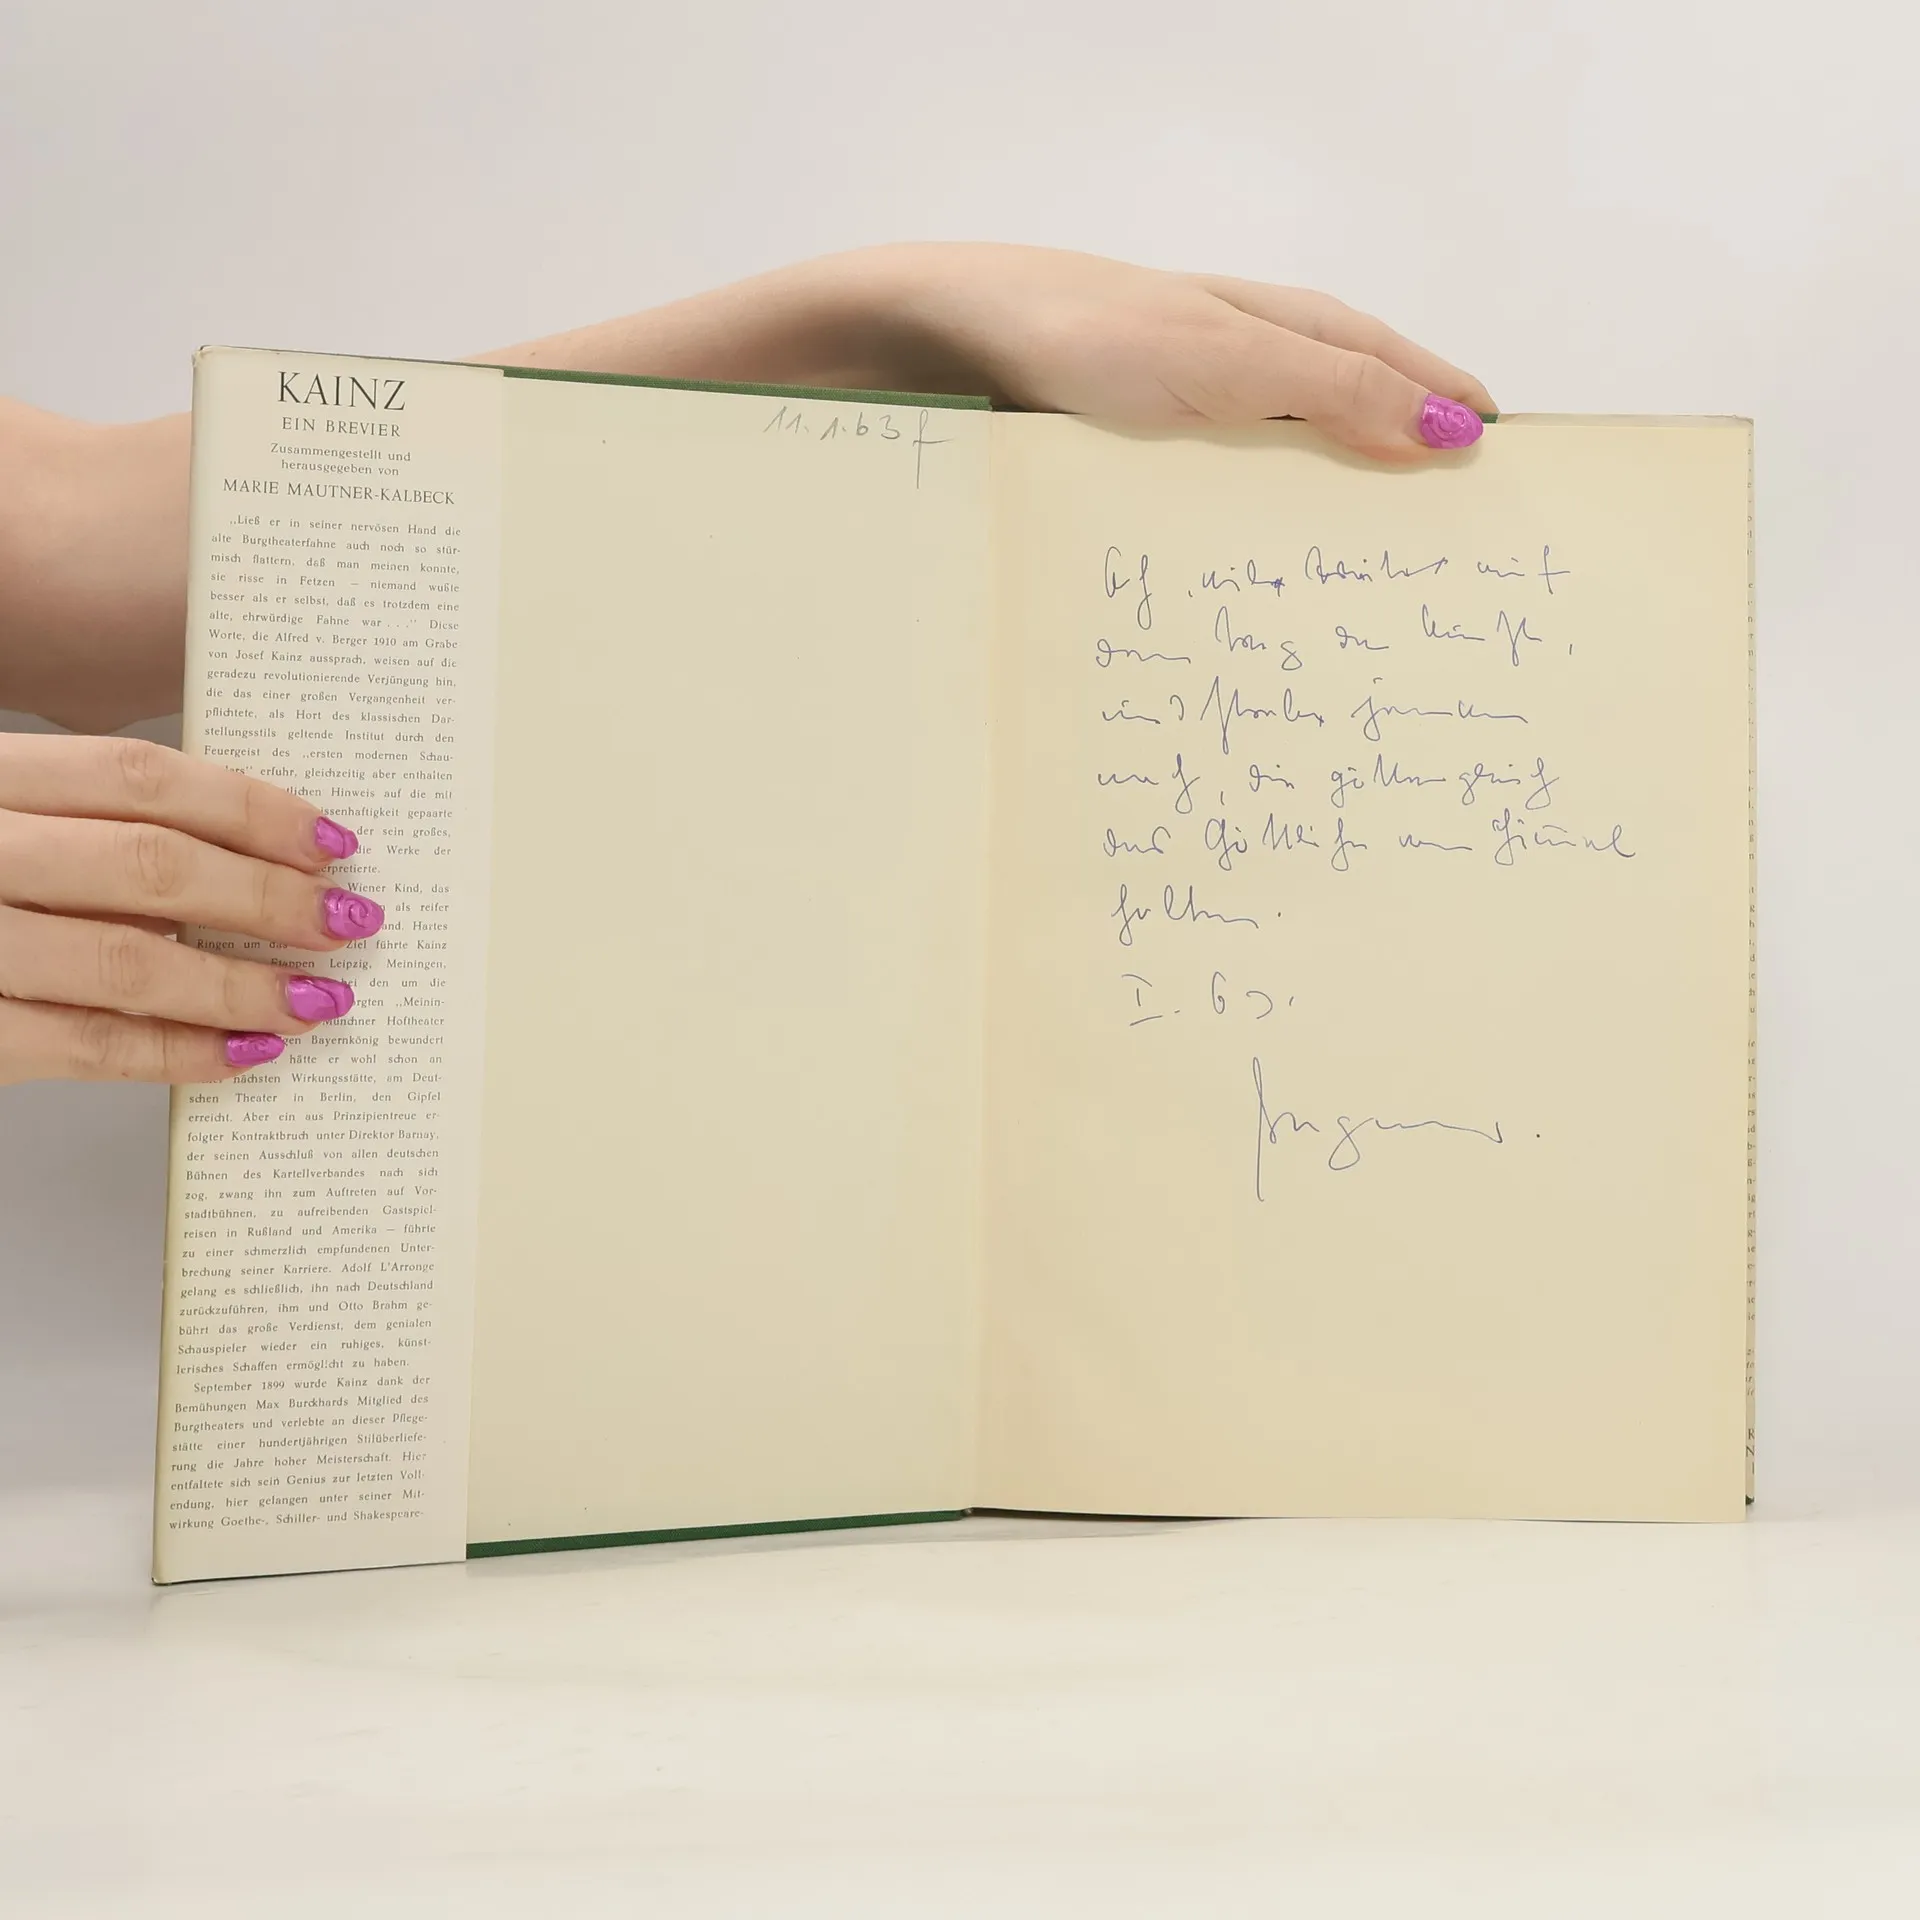 KAINZ
EIN BREVIER
Zusammengestellt und
herausgegeben von
MARIE MAUTNER-KALBECK
„Ließ er in seiner nervösen Hand die
alte Burgtheaterfahne auch noch so stür-
misch flattern, daß man meinen konnte,
sie risse in Fetzen — niemand wußte
besser als er selbst, daß es trotzdem eine
alte, ehrwürdige Fahne war . . .“ Diese
Worte, die Alfred v. Berger 1910 am Grabe
von Josef Kainz aussprach, weisen auf die
geradezu revolutionierende Verjüngung hin,
die das einer großen Vergangenheit ver-
pflichtete, als Hort des klassischen Dar-
stellungsstils geltende Institut durch den
Feuergeist des „ersten modernen Schau-
erfuhr, gleichzeitig aber enthalten
tlichen Hinweis auf die mit
issenhaftigkeit gepaarte
der sein großes,
die Werke der
erpretierte.
Wiener Kind, das
als reifer
and. Hartes
Ringen um das Ziel führte Kainz
Etappen Leipzig, Meiningen,
bei den um die
orgten „Meinin-
Münchner Hoftheater
gen Bayernkönig bewundert
hätte er wohl schon an
nächsten Wirkungsstätte, am Deut-
schen Theater in Berlin, den Gipfel
erreicht. Aber ein aus Prinzipientreue er-
folgter Kontraktbruch unter Direktor Barnay,
der seinen Ausschluß von allen deutschen
Bühnen des Kartellverbandes nach sich
zog, zwang ihn zum Auftreten auf Vor-
stadtbühnen, zu aufreibenden Gastspiel-
reisen in Rußland und Amerika — führte
zu einer schmerzlich empfundenen Unter-
brechung seiner Karriere. Adolf L'Arronge
gelang es schließlich, ihn nach Deutschland
zurückzuführen, ihm und Otto Brahm ge-
bührt das große Verdienst, dem genialen
Schauspieler wieder ein ruhiges, künst-
lerisches Schaffen ermöglicht zu haben.
September 1899 wurde Kainz dank der
Bemühungen Max Burckhards Mitglied des
Burgtheaters und verlebte an dieser Pflege-
stätte einer hundertjährigen Stilüberliefe-
rung die Jahre hoher Meisterschaft. Hier
entfaltete sich sein Genius zur letzten Voll-
endung, hier gelangen unter seiner Mit-
wirkung Goethe-, Schiller- und Shakespeare-
11.1.63
auf
dem Weg der
und
nach, die göttergleich
das Göttliche vom Himmel
holten.
I. 63.